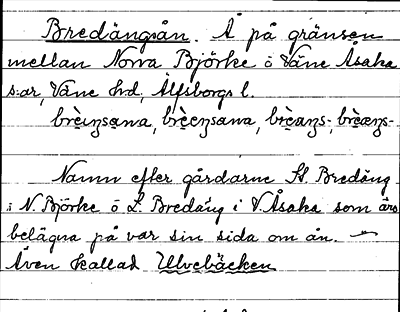 Bredängsån. Å på gränsen
mellan Norra Björke o Väne Åsaka
s:ar, Väne hd, Älfsborgs l.
Namn efter gårdarne St. Bredäng
i N. Björke o L. Bredäng i V. Åsaka som äro
belägna på var sin sida om ån. —
Även kallad Ulvebäcken